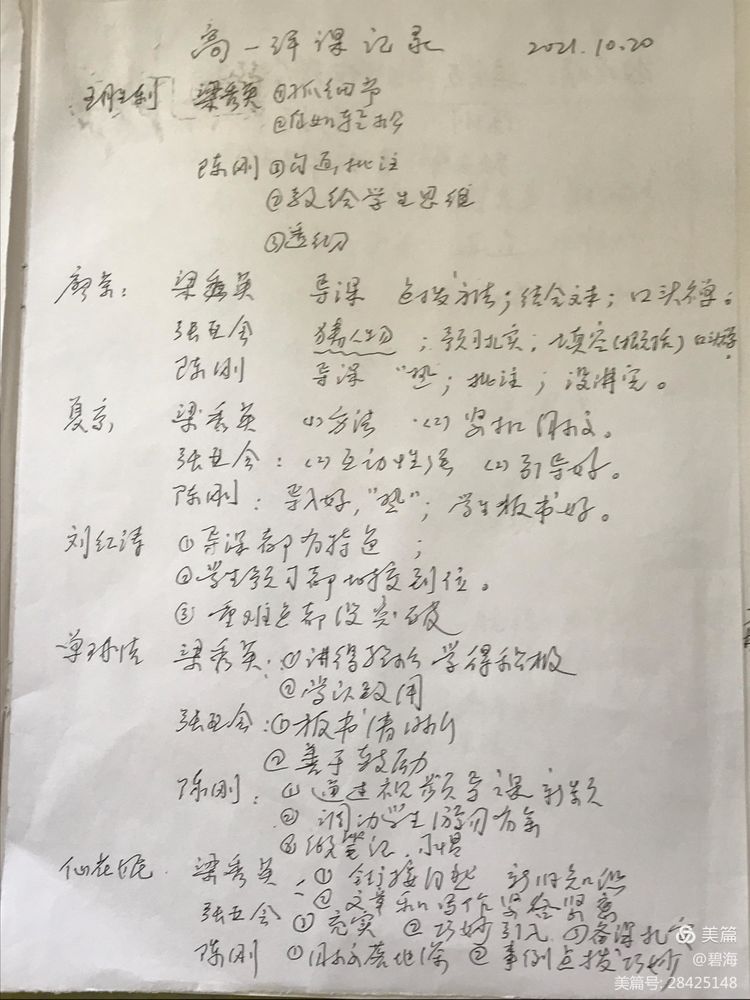 高一评课记录 2021.10.20
王胜利 梁秀英 ①抓细节
②
陈刚 ①勾画批注
②教给学生思维
③透彻
廖荣: 梁秀英 导课 点拨方法；结合文本；口头禅。
张亚会 猜人物；预习扎实；填空(概括)口头禅。
陈刚 导课"垫"；批注；没讲完。
夏京 梁秀英 (1)方法 (2)紧扣课文。
张亚会: (2)互动性强 (2)引导好。
陈刚: 导入好,"垫"；学生板书好。
刘红涛 ①导课都有特色；
②学生预习都比较到位。
③重难点都没突破
梁秀英: ①讲得轻松 学得积极
②学以致用
张亚会: ①板书清晰
②善于鼓励
陈刚: ①通过视频导课 新颖
② 调动学生
③做笔记 习惯
梁秀英: ①衔接自然 新旧知识
②文章和写作紧密
张亚会 ①充实 ②巧妙引入 ③备课扎实
陈刚 ①课文落地 ②事例点拨巧妙
美篇
@碧海
美篇号: 28425148